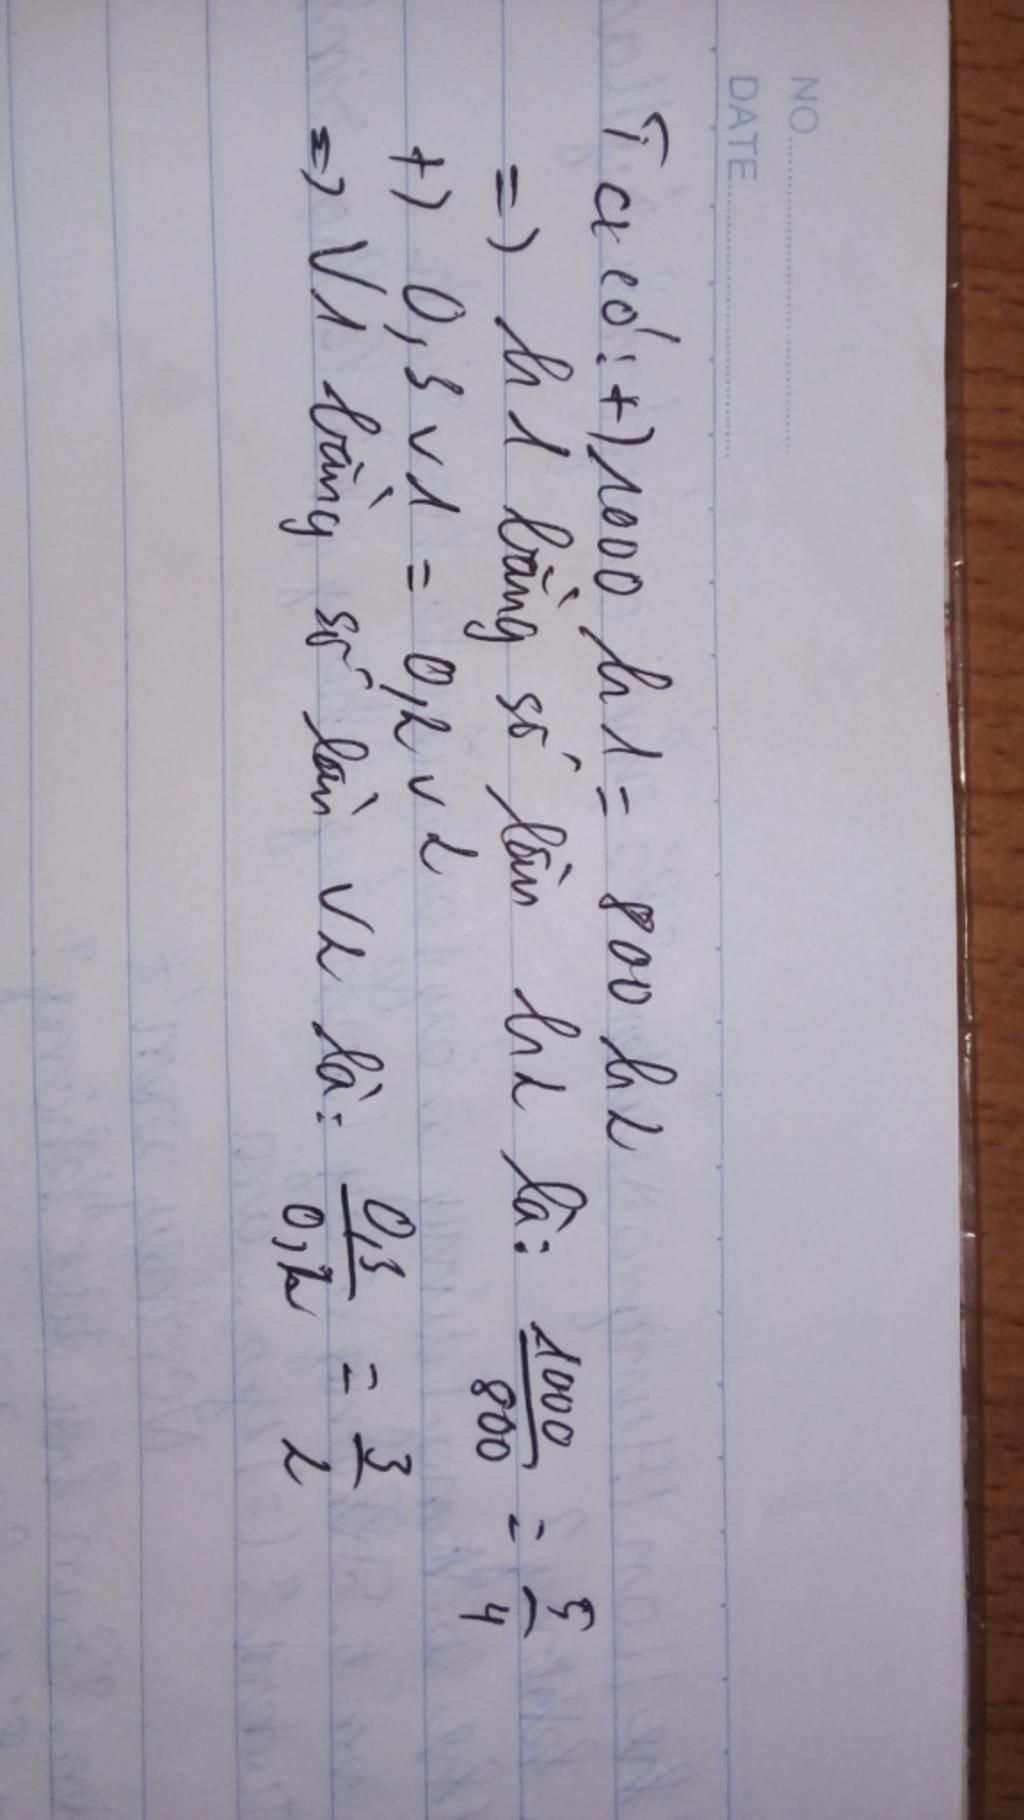 NO.
DATE
Ta có: +) 1000 h1 = 800 h2
=) h1 bằng số lần h2 là: 1000/800 = 5/4
+) 0,3 v1 = 0,2 v2
=) V1 bằng số lần v2 là: 0,3/0,2 = 3/2